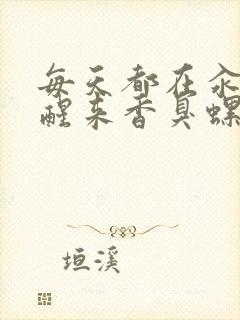 每天都在汆
醒来香臭螺
垣溪